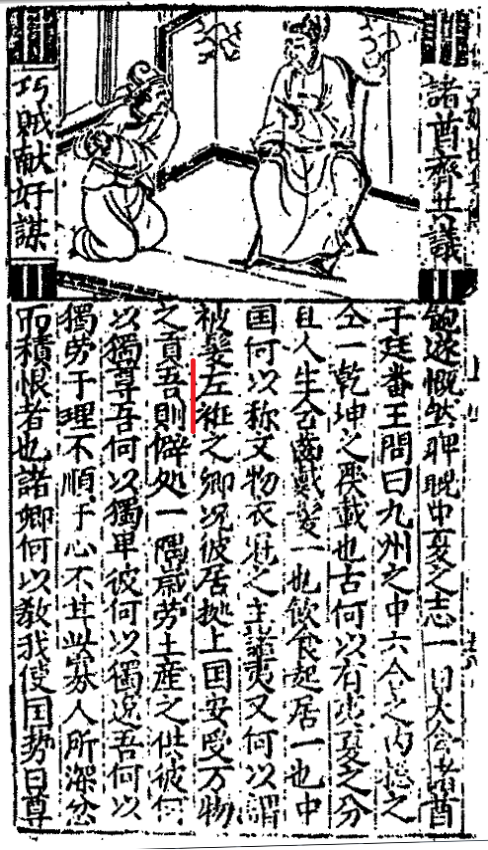 諸酋齊共議
巧賊献奸謀
遂慨然睥睨中夏之志一日大会諸酋
于廷番王問曰九州之中六合之内総之
仝一乾坤之覆載也古何以有夷夏之分
且人生含齒戴髮一也飲食起居一也中
国何以称文物衣冠之主夷又何以謂
被髮左袵之鄉况彼居拠上国安受万物
之貢吾則僻処一隅歳劳土産之供彼何
以獨尊吾何以獨卑彼何以獨逸吾何以
獨劳于理不順于心不甘此寡人所深忿
而積恨者也諸卿何以教我使国势日尊